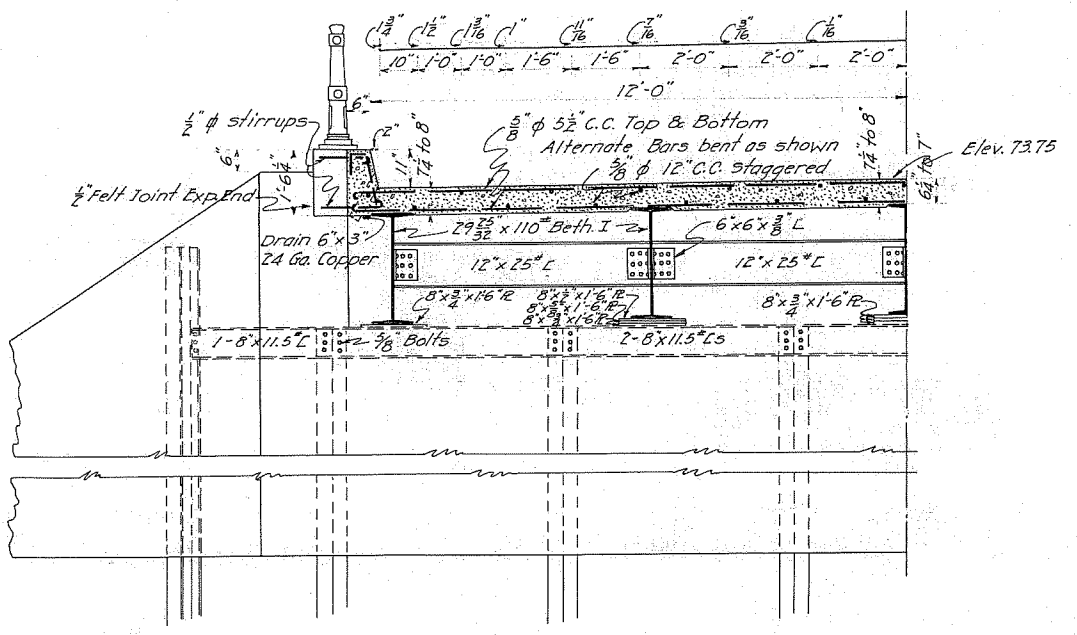 1 3/4" 1 1/2" 1 3/16" 1" 11/16" 7/16" 3/16" 1/16"
10" 1'-0" 1'-0" 1'-6" 1'-6" 2'-0" 2'-0" 2'-0"
12'-0"
6"
1/2" ϕ stirrups
2"
5/8" ϕ 5 1/2" C.C. Top & Bottom
Alternate Bars bent as shown
5/8" ϕ 12" C.C. Staggered
6"
11"
7 1/4" to 8"
7 1/4" to 8"
Elev. 73.75
6 1/4" to 7"
1/2" Felt Joint Exp. End
1'-6 1/4"
Drain 6" x 3"
24 Ga. Copper
29 25/32" x 110# Beth. I
6"x6"x3/8" L
12" x 25# [
12" x 25# [
8"x3/4"x1'-6" PL
8"x1/2"x1'-6" PL
8"x3/4"x1'-6" PL
8"x3/4"x1'-6" PL
1-8"x11.5# [
5/8" Bolts
2-8"x11.5# [s